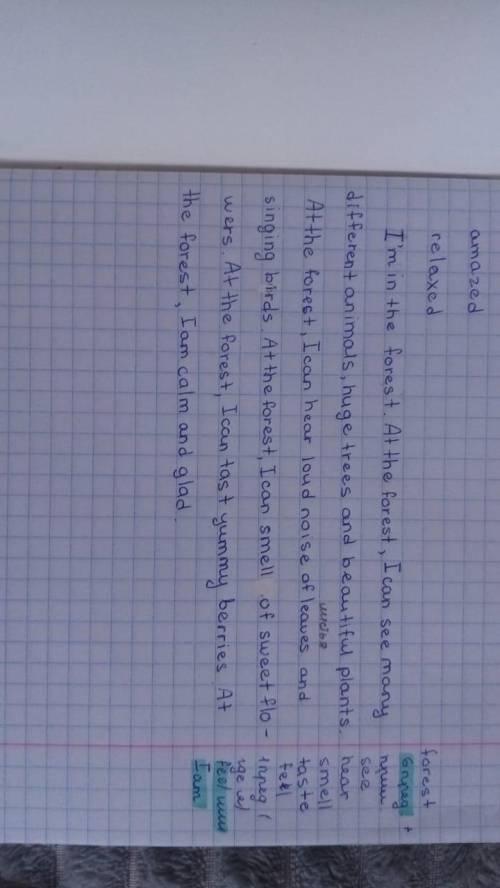 amazed
relaxed
I'm in the forest. At the forest, I can see many
different animals, huge trees and beautiful plants.
листья
At the forest, I can hear loud noise of leaves and
singing birds At the forest, I can smell of sweet flo-
wers. At the forest, I can tast yummy berries. At
the forest, I am calm and glad.
forest
6 пред +
see
hear
smell
taste
feel
1 пред (
где я)
feel/или
I am